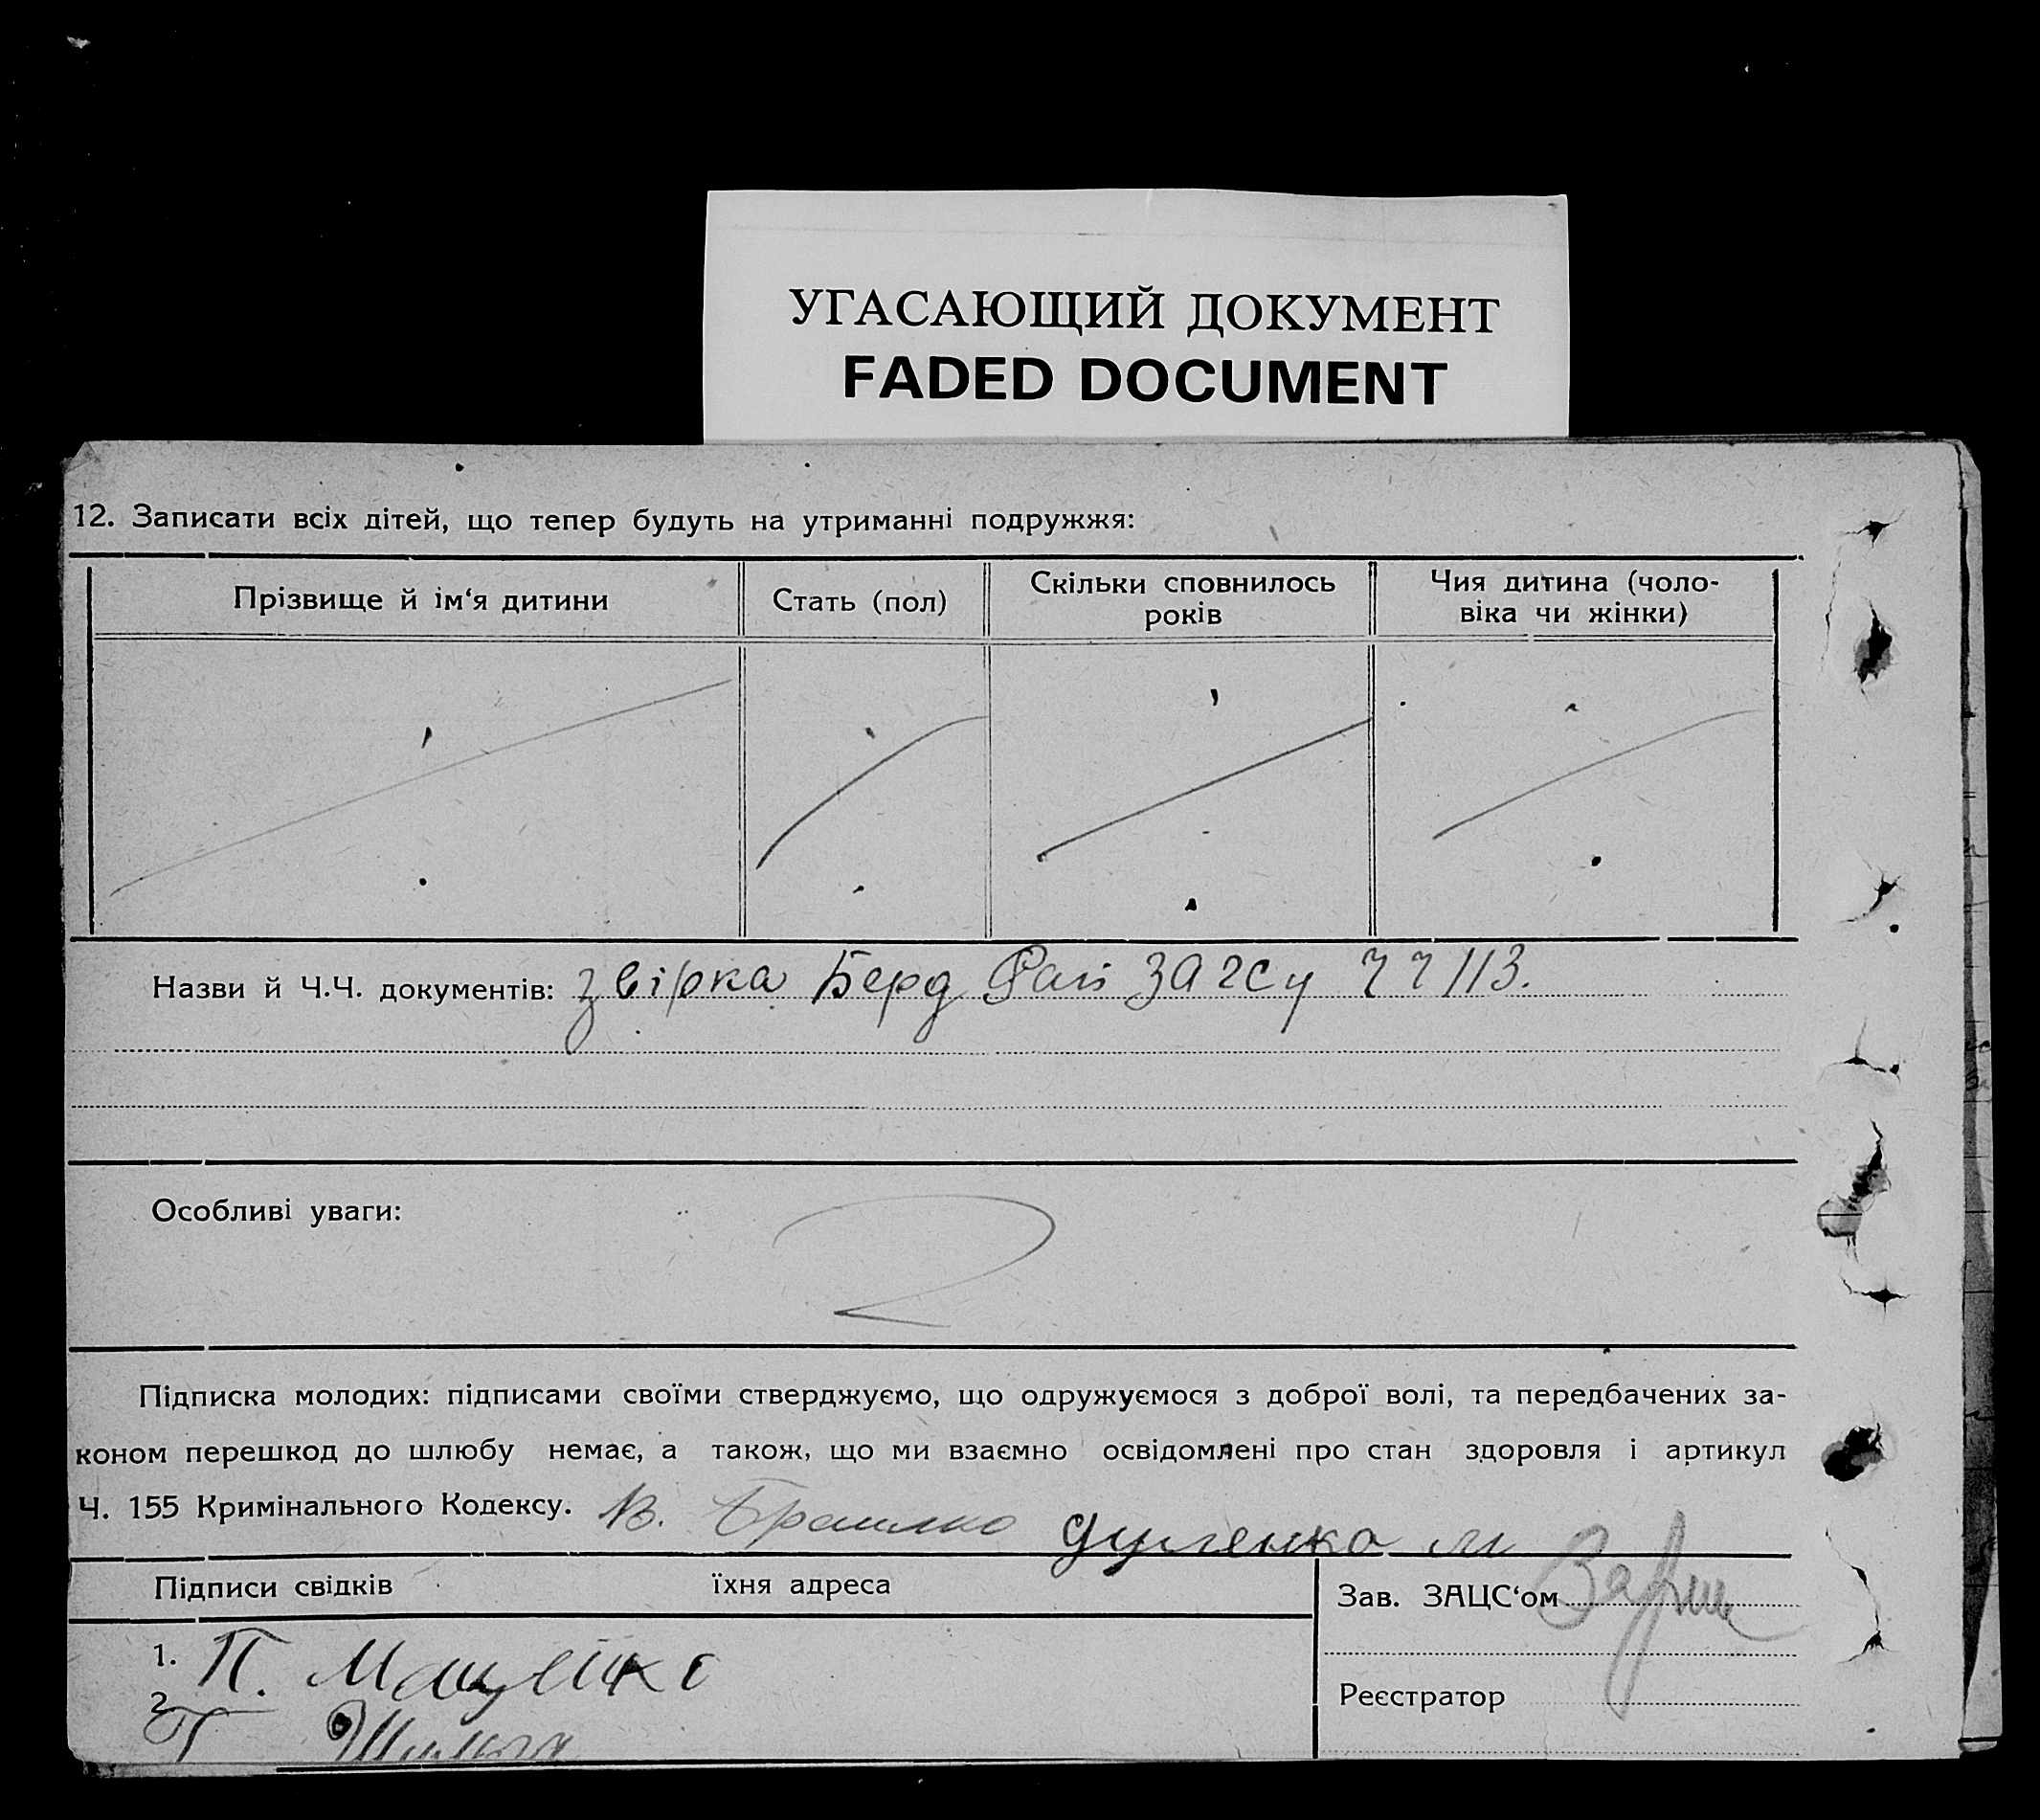 УГАСАЮЩИЙ ДОКУМЕНТ
FADED DOCUMENT
12. Записати всіх дітей, що тепер будуть на утриманні подружжя:
Прізвище й ім‘я дитини
Стать (пол)
Скільки сповнилось
років
Чия дитина (чоло-
віка чи жінки)
Назви й Ч.Ч. документів: звірка Берд Рай загсу 113.
Особливі уваги:
Підписка молодих: підписами своїми стверджуємо, що одружуємося з доброї волі, та передбачених за-
коном перешкод до шлюбу немає, а також, що ми взаємно освідомлені про стан здоровля і артикул
Ч. 155 Кримінального Кодексу. В.
Підписи свідків
їхня адреса
Зав. ЗАЦС‘ом
1. П.
2.
Реєстратор